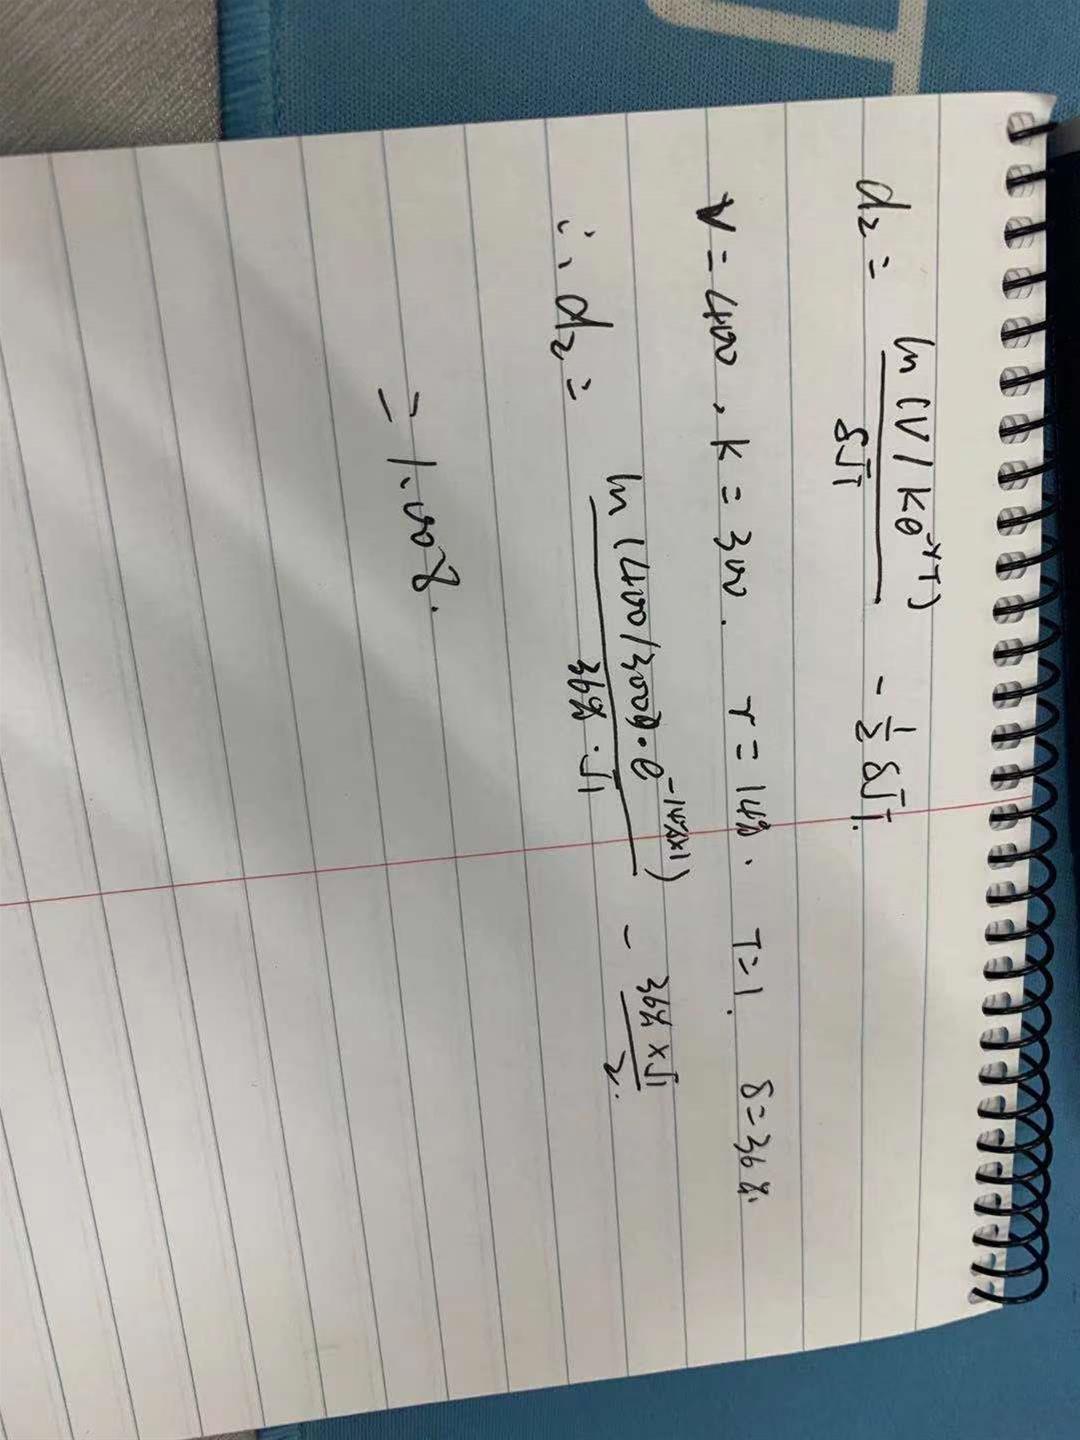 d₂ = ln (V / Ke⁻ʳᵀ) / δ√T - 1/2 δ√T.
V = 400 . K = 300 . r = 14% . T = 1 . δ = 36%.
∴ d₂ = ln (400/300 · e^(-14%×1)) / 36% · √1 - 36% × √1 / 2.
= 1.008.